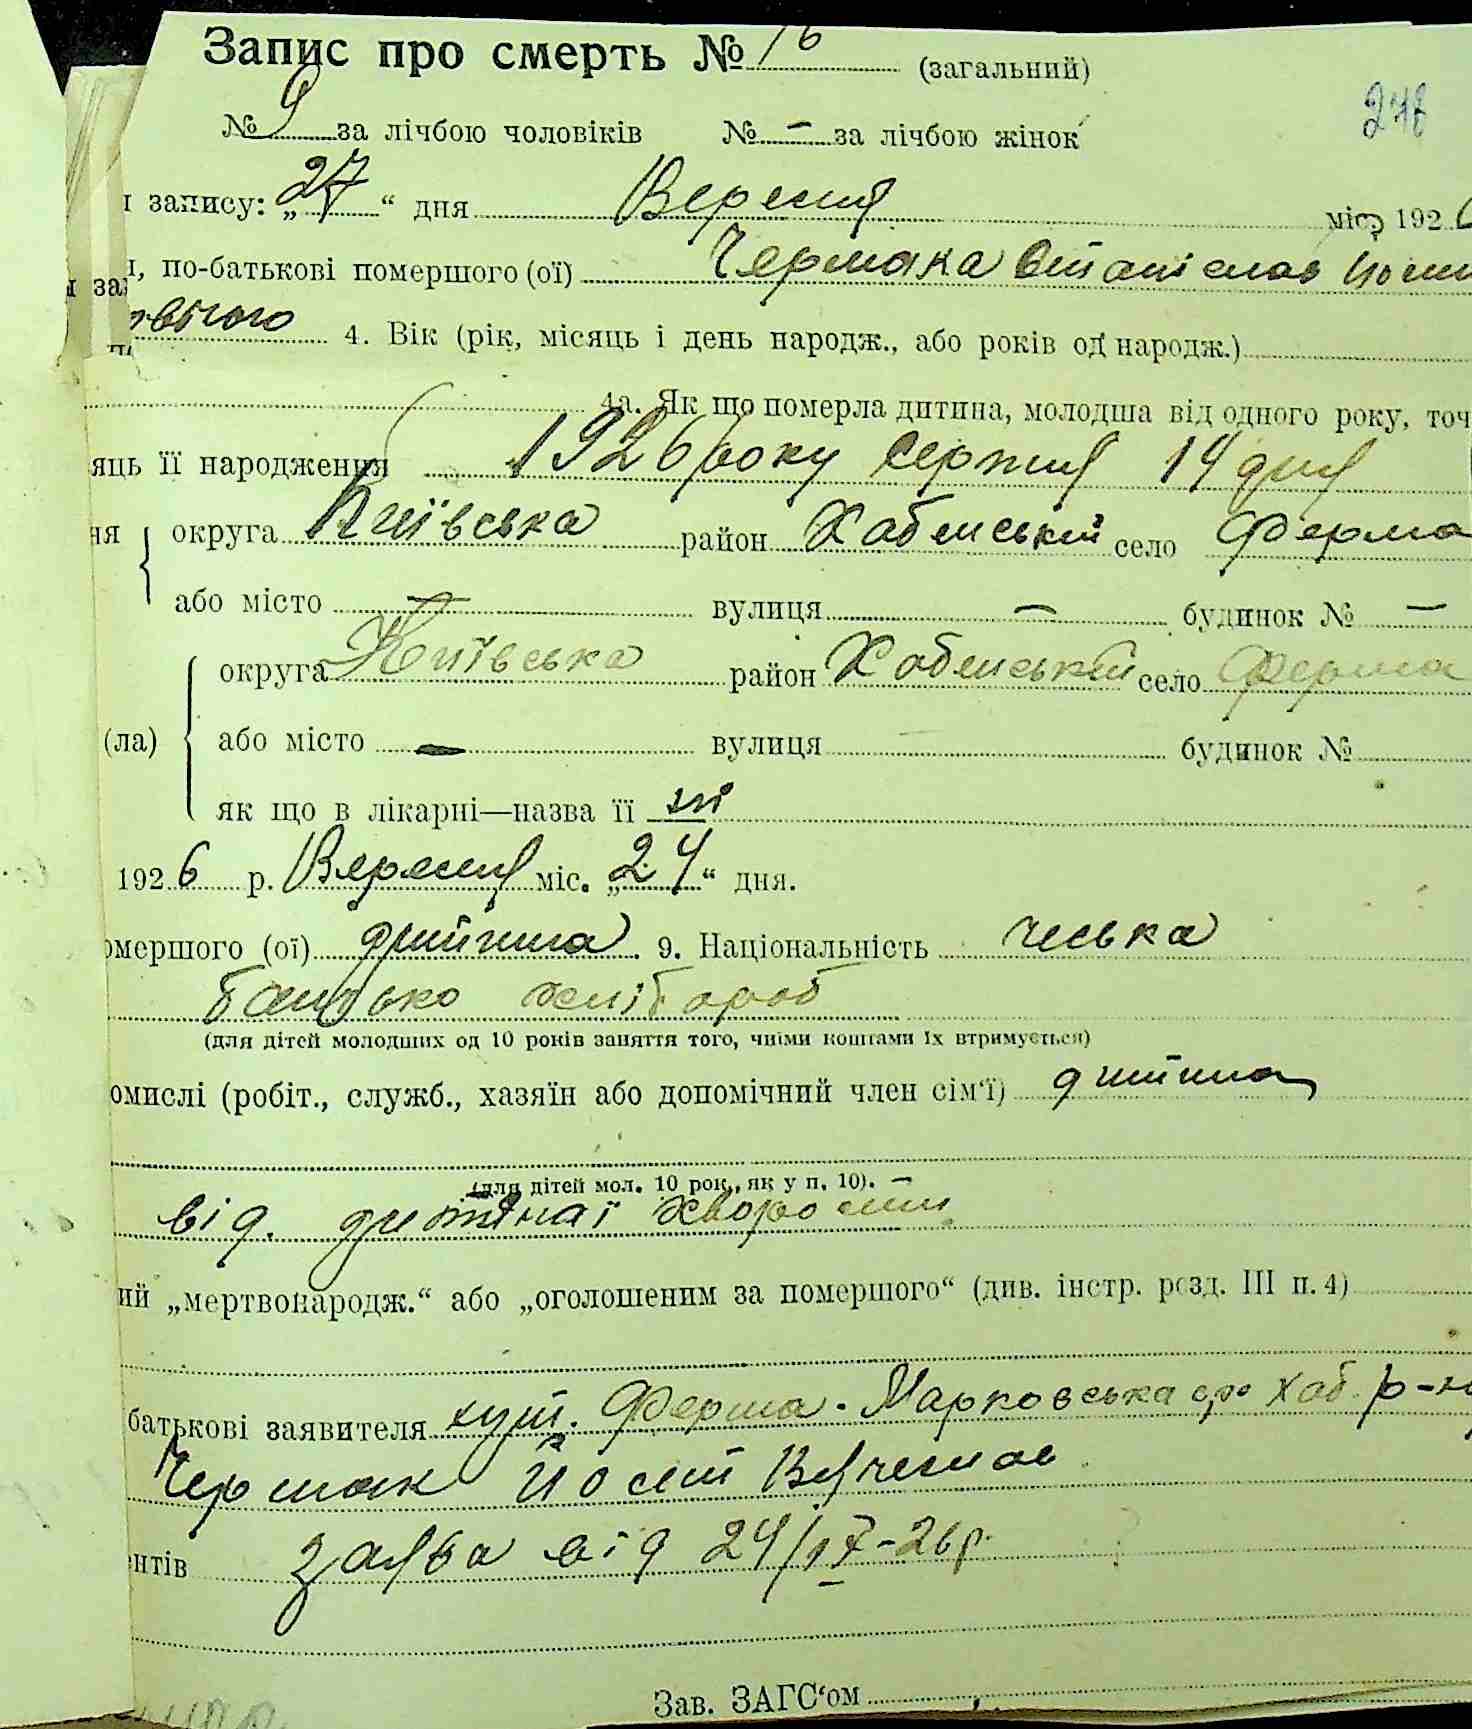 Запис про смерть № 16 (загальний)
278
№ 9 за лічбою чоловіків № — за лічбою жінок
запису: „27“ дня Вересня міс. 192
по-батькові помершого (ої) Чермака Станіслав Йоси
овього 4. Вік (рік, місяць і день народж., або років од народж.)
4а. Як що померла дитина, молодша від одного року, точ
яць її народження 1926 року серпня 14 дня
ня округа Київська район Хабенський село Ферма
або місто — вулиця — будинок № —
округа Київська район Хабенський село Ферма
(ла) або місто — вулиця будинок №
як що в лікарні—назва її ні
1926 р. Вересня міс. „24“ дня.
омершого (ої) дитина. 9. Національність чеська
батько хлібороб
(для дітей молодших од 10 років заняття того, чиїми коштами їх втримується)
омислі (робіт., служб., хазяїн або допомічний член сім'ї) дитина
(для дітей мол. 10 рок., як у п. 10). —
від. дитячаї хворости
ий „мертвонародж.“ або „оголошеним за помершого“ (див. інстр. розд. III п. 4)
батькові заявителя хут. Ферма. Марковська с/р Хаб. р-н
Чермак Йосип Вячеслав
нтів заява від 24/IX-26р.
Зав. ЗАГС'ом